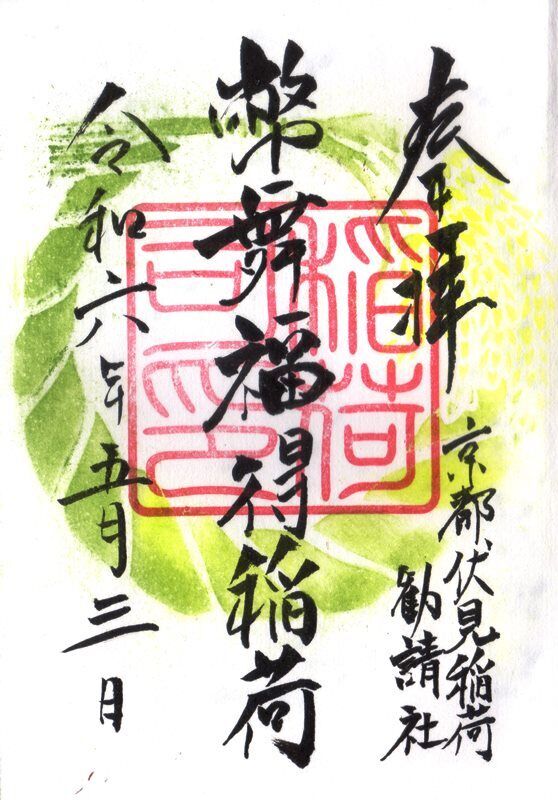 奉拝
京都伏見稲荷
勧請社
幣舞福得稲荷
令和六年五月三日